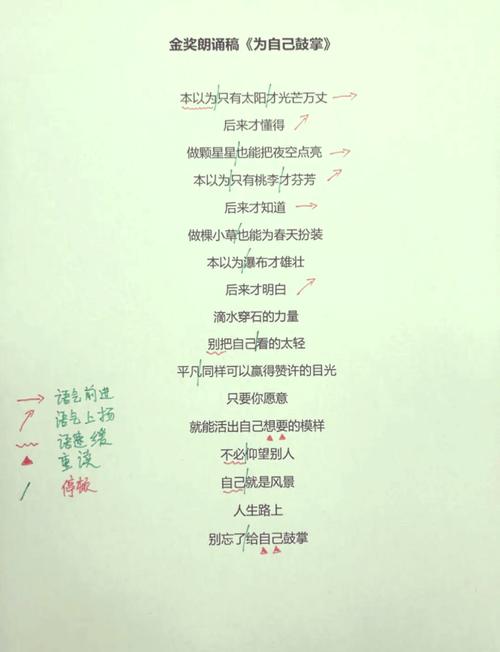 金奖朗诵稿《为自己鼓掌》
本以为只有太阳才光芒万丈
后来才懂得
做颗星星也能把夜空点亮
本以为只有桃李才芬芳
后来才知道
做棵小草也能为春天扮装
本以为瀑布才雄壮
后来才明白
滴水穿石的力量
别把自己看的太轻
平凡同样可以赢得赞许的目光
只要你愿意
就能活出自己想要的模样
不必仰望别人
自己就是风景
人生路上
别忘了给自己鼓掌
语气前进
语气上扬
语速缓
重读
停顿